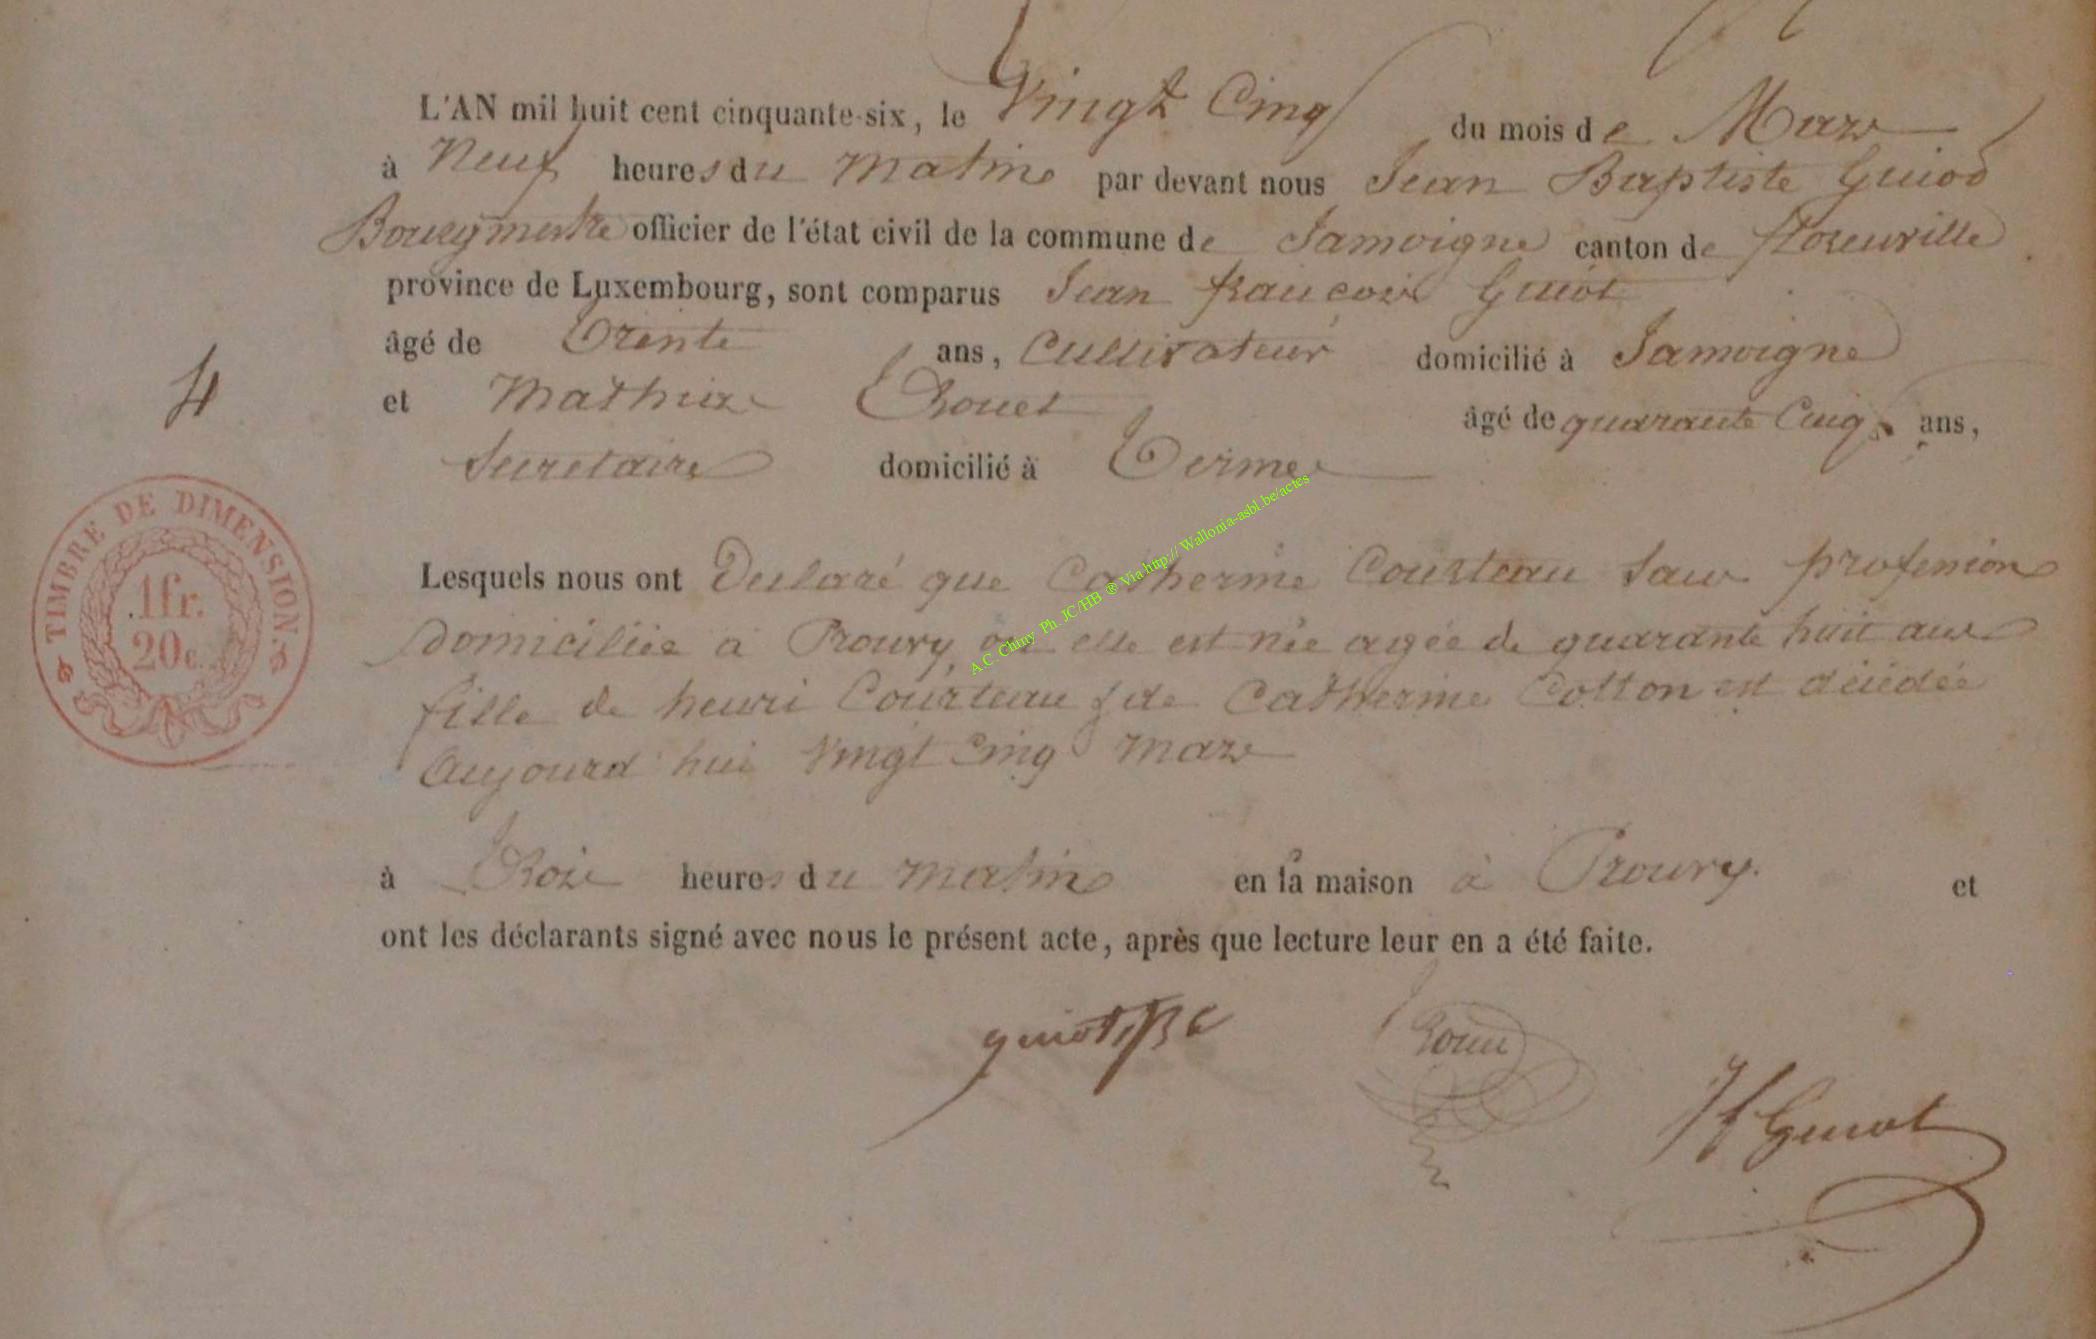 L'AN mil huit cent cinquante-six, le Vingt Cinq du mois de Mars
à Neuf heures du matin par devant nous Jean Baptiste Guiot
Bourgmestre officier de l'état civil de la commune de Jamoigne canton de florenville
province de Luxembourg, sont comparus Jean françois Guiot
âgé de Trente ans, Cultivateur domicilié à Jamoigne
4
et Mathieu Rouet âgé de quarante Cinq ans,
Secretaire domicilié à Termes
TIMBRE DE DIMENSION.
1fr.
20c.
Lesquels nous ont Declaré que Catherine Courteau sans profession
domiciliée a Prouvy où elle est née agée de quarante huit ans
fille de henri Courteau & de Catherine Cotton est décédée
Aujourd'hui Vingt Cinq mars
à Trois heures du matin en sa maison à Prouvy. et
ont les déclarants signé avec nous le présent acte, après que lecture leur en a été faite.
guiot JB
Rouet
Jf Guiot
A.C. Chiny Ph. JC/HB ® Via http:// Wallonia-asbl.be/actes